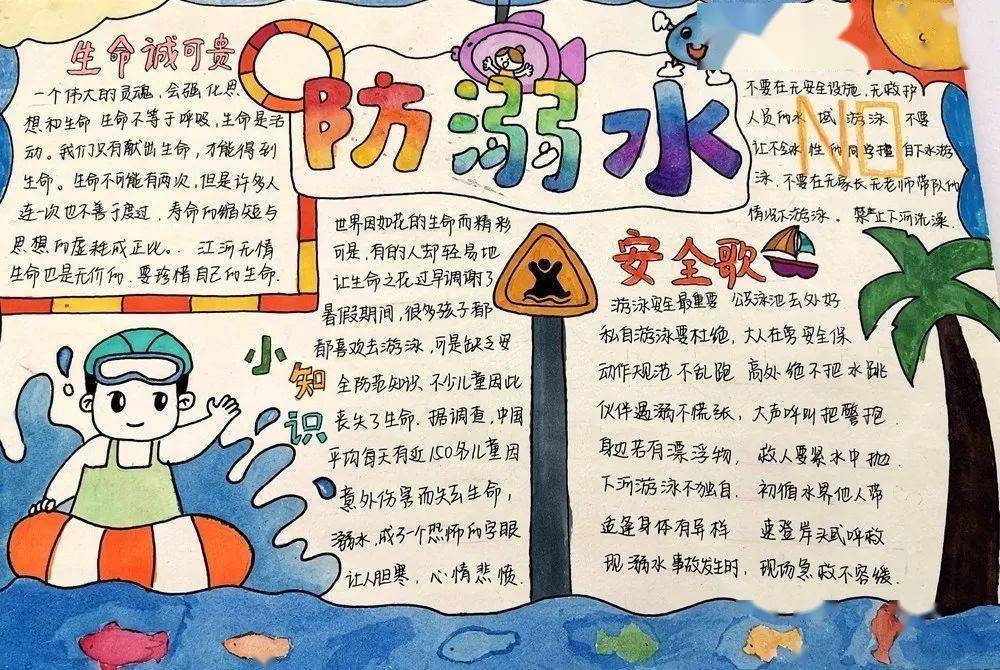 防溺水
生命诚可贵
一个伟大的灵魂，会强化思
想和生命 生命不等于呼吸，生命是活
动。我们只有献出生命，才能得到
生命。生命不可能有两次，但是许多人
连一次也不善于度过，寿命的缩短与
思想的虚耗成正比。江河无情
生命也是无价的，要珍惜自己的生命.
小知识
世界因如花的生命而精彩
可是，有的人却轻易地
让生命之花过早调谢了
暑假期间，很多孩子都
都喜欢去游泳，可是缺乏安
全防范知识 不少儿童因此
丧失了生命. 据调查，中国
平均每天有近150名儿童因
意外伤害而失去生命，
溺水，成了一个恐怖的字眼
让人胆寒，心情悲愤.
不要在无安全设施、无救护
人员的水域游泳 不要
让不会水性的同学擅自下水游
泳. 不要在无家长无老师带队的
情况下游泳。禁止下河洗澡.
NO
安全歌
游泳安全最重要 公泳池去处好
私自游泳要杜绝，大人在旁安全保
动作规范不乱跑 高处绝不把水跳
伙伴遇溺不慌张，大声呼叫把警抱.
身边若有漂浮物，救人要紧水中抛.
下河游泳不独自. 初循水界他人带
逢身体有异样 速登岸头或呼救
现溺水事故发生时，现场急救不容缓.